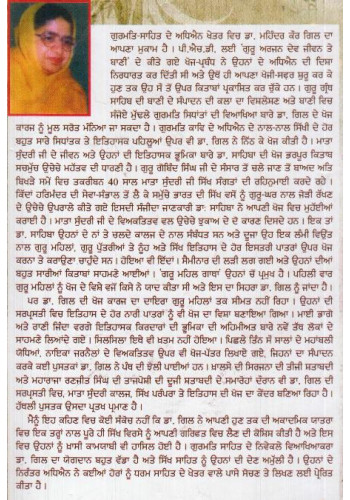 ਗੁਰਮਤਿ-ਸਾਹਿਤ ਦੇ ਅਧਿਐਨ ਖੇਤਰ ਵਿਚ ਡਾ. ਮਹਿੰਦਰ ਕੌਰ ਗਿਲ ਦਾ
ਆਪਣਾ ਮੁਕਾਮ ਹੈ। ਪੀ.ਐਚ.ਡੀ. ਲਈ 'ਗੁਰੂ ਅਰਜਨ ਦੇਵ ਜੀਵਨ ਤੇ
ਬਾਣੀ' ਦੇ ਕੀਤੇ ਗਏ ਖੋਜ-ਪ੍ਰਬੰਧ ਨੇ ਉਹਨਾਂ ਦੇ ਅਧਿਐਨ ਦੀ ਦਿਸ਼ਾ
ਨਿਰਧਾਰਤ ਕਰ ਦਿੱਤੀ ਸੀ ਅਤੇ ਉਥੋਂ ਹੀ ਆਪਣਾ ਖੋਜੀ-ਸਫਰ ਸ਼ੁਰੂ ਕਰ ਕੇ
ਹੁਣ ਤਕ ਉਹ ਸੌ ਤੋਂ ਉਪਰ ਕਿਤਾਬਾਂ ਪ੍ਰਕਾਸ਼ਿਤ ਕਰ ਚੁੱਕੇ ਹਨ। ਗੁਰੂ ਗ੍ਰੰਥ
ਸਾਹਿਬ ਦੀ ਬਾਣੀ ਦੇ ਸੰਪਾਦਨ ਦੀ ਕਲਾ ਦਾ ਵਿਸ਼ਲੇਸ਼ਣ ਅਤੇ ਬਾਣੀ ਵਿਚ
ਸੰਜੋਏ ਮੁੱਢਲੇ ਗੁਰਮਤਿ ਸਿਧਾਂਤਾਂ ਦੀ ਵਿਆਖਿਆ ਬਾਰੇ ਡਾ. ਗਿਲ ਦੇ ਖੋਜ
ਕਾਰਜ ਨੂੰ ਮੂਲ ਸਰੋਤ ਮੰਨਿਆ ਜਾ ਸਕਦਾ ਹੈ। ਗੁਰਮਤਿ ਕਾਵਿ ਦੇ ਅਧਿਐਨ ਦੇ ਨਾਲ-ਨਾਲ ਸਿੱਖੀ ਦੇ ਹੋਰ
ਬਹੁਤ ਸਾਰੇ ਸਿਧਾਂਤਕ ਤੇ ਇਤਿਹਾਸਕ ਪਹਿਲੂਆਂ ਉਪਰ ਵੀ ਡਾ. ਗਿਲ ਨੇ ਨਿੱਠ ਕੇ ਖੋਜ ਕੀਤੀ ਹੈ। ਮਾਤਾ
ਸੁੰਦਰੀ ਜੀ ਦੇ ਜੀਵਨ ਅਤੇ ਉਹਨਾਂ ਦੀ ਇਤਿਹਾਸਕ ਭੂਮਿਕਾ ਬਾਰੇ ਡਾ. ਸਾਹਿਬਾ ਦੀ ਖੋਜ ਭਰਪੂਰ ਕਿਤਾਬ
ਸਚਮੁੱਚ ਉਚੇਚੇ ਮਹੱਤਵ ਦੀ ਧਾਰਣੀ ਹੈ। ਗੁਰੂ ਗੋਬਿੰਦ ਸਿੰਘ ਜੀ ਦੇ ਸੰਸਾਰ ਤੋਂ ਚਲੇ ਜਾਣ ਤੋਂ ਬਾਅਦ ਅਤਿ
ਬਿਖੜੇ ਸਮੇਂ ਵਿਚ ਤਕਰੀਬਨ 40 ਸਾਲ ਮਾਤਾ ਸੁੰਦਰੀ ਜੀ ਸਿੱਖ ਸੰਗਤਾਂ ਦੀ ਰਹਿਨੁਮਾਈ ਕਰਦੇ ਰਹੇ।
ਕਿੰਦਾਂ ਹਥਿਦਰਾਮ ਦੀ ਸੇਵਾ-ਸੰਭਾਲ ਤੋਂ ਲੈ ਕੇ ਸਮੁੱਚੇ ਭਾਰਤ ਦੀ ਸਿੱਖ ਵਸੋਂ ਨੂੰ ਗੁਰੂ-ਘਰ ਨਾਲ ਜੋੜੀ ਰੱਖਣ
ਦੇ ਉਚੇਚੇ ਉਪਰਾਲੇ ਕੀਤੇ ਗਏ ਇਸਦੀ ਸੰਜੀਦਾ ਜਾਣਕਾਰੀ ਡਾ. ਸਾਹਿਬਾ ਨੇ ਆਪਣੀ ਖੋਜ ਵਿਚ ਮੁਹੱਈਆ
ਕਰਾਈ ਹੈ। ਮਾਤਾ ਸੁੰਦਰੀ ਜੀ ਦੇ ਵਿਅਕਤਿਤਵ ਵਲ ਉਚੇਚੇ ਝੁਕਾਅ ਦੇ ਦੋ ਕਾਰਣ ਦਿਸਦੇ ਹਨ। ਇਕ ਤਾਂ
ਡਾ. ਸਾਹਿਬਾ ਉਹਨਾਂ ਦੇ ਨਾਂ ਤੇ ਚਲਦੇ ਕਾਲਜ ਦੇ ਨਾਲ ਸੰਬੰਧਤ ਸਨ ਅਤੇ ਦੂਜਾ ਉਹ ਇਕ ਲੰਮੀ ਵਿਉਂਤ
ਨਾਲ ਗੁਰੂ ਮਹਿਲਾਂ, ਗੁਰੂ ਪੁੱਤਰੀਆਂ ਤੇ ਨੂੰਹ ਅਤੇ ਸਿੱਖ ਇਤਿਹਾਸ ਦੇ ਹੋਰ ਇਸਤਰੀ ਪਾਤਰਾਂ ਉਪਰ ਖੋਜ
ਕਰਨਾ ਤੇ ਕਰਾਉਣਾ ਚਾਹੁੰਦੇ ਸਨ। ਹੋਇਆ ਵੀ ਇੰਦਾਂ। ਸੈਮੀਨਾਰ ਦੀ ਲੜੀ ਲਗ ਗਈ ਅਤੇ ਉਹਨਾਂ ਦੀਆਂ
ਬਹੁਤ ਸਾਰੀਆਂ ਕਿਤਾਬਾਂ ਸਾਹਮਣੇ ਆਈਆਂ। 'ਗੁਰੂ ਮਹਿਲ ਗਾਥਾ' ਉਹਨਾਂ ਚੋਂ ਪ੍ਰਮੁਖ ਹੈ। ਪਹਿਲੀ ਵਾਰ
ਗੁਰੂ ਮਹਿਲਾਂ ਨੂੰ ਖੋਜ ਦੇ ਵਿਸ਼ੇ ਵਜੋਂ ਕਿਸੇ ਨੇ ਯਾਦ ਕੀਤਾ ਸੀ ਅਤੇ ਇਸ ਦਾ ਸਿਹਰਾ ਡਾ. ਗਿਲ ਨੂੰ ਜਾਂਦਾ ਹੈ।
ਪਰ ਡਾ. ਗਿਲ ਦੀ ਖੋਜ ਕਾਰਜ ਦਾ ਦਾਇਰਾ ਗੁਰੂ ਮਹਿਲਾਂ ਤਕ ਸੀਮਤ ਨਹੀਂ ਰਿਹਾ। ਉਹਨਾਂ ਦੀ
ਸਰਪ੍ਰਸਤੀ ਵਿਚ ਇਤਿਹਾਸ ਦੇ ਹੋਰ ਨਾਰੀ ਪਾਤਰਾਂ ਨੂੰ ਵੀ ਖੋਜ ਦਾ ਵਿਸ਼ਾ ਬਣਾਇਆ ਗਿਆ। ਮਾਈ ਭਾਗੋ
ਅਤੇ ਰਾਣੀ ਜਿੰਦਾਂ ਵਰਗੇ ਇਤਿਹਾਸਕ ਕਿਰਦਾਰਾਂ ਦੀ ਭੂਮਿਕਾ ਦੀ ਅਹਿਮੀਅਤ ਬਾਰੇ ਨਵੇਂ ਤੱਥ ਲੋਕਾਂ ਦੇ
ਸਾਹਮਣੇ ਲਿਆਂਦੇ ਗਏ। ਸਿਲਸਿਲਾ ਇਥੇ ਵੀ ਖ਼ਤਮ ਨਹੀਂ ਹੋਇਆ। ਪਿਛਲੇ ਤਿੰਨ ਸੌ ਸਾਲਾਂ ਦੇ ਮਹਾਬਲੀ
ਯੋਧਿਆਂ, ਨਾਇਕਾਂ ਜਰਨੈਲਾਂ ਦੇ ਵਿਅਕਤਿਤਵ ਉਪਰ ਵੀ ਖੋਜ-ਪੱਤਰ ਲਿਖਾਏ ਗਏ, ਜਿਹਨਾਂ ਦਾ ਸੰਪਾਦਨ
ਕਰਕੇ ਕਈ ਪੁਸਤਕਾਂ ਡਾ. ਗਿਲ ਨੇ ਪੰਥ ਦੀ ਝੋਲੀ ਪਾਈਆਂ ਹਨ। ਖ਼ਾਲਸੇ ਦੀ ਸਿਰਜਨਾ ਦੀ ਤੀਜੀ ਸ਼ਤਾਬਦੀ
ਅਤੇ ਮਹਾਰਾਜਾ ਰਣਜੀਤ ਸਿੰਘ ਦੀ ਤਾਜਪੋਸ਼ੀ ਦੀ ਦੂਜੀ ਸ਼ਤਾਬਦੀ ਦੇ ਸਮਾਰੋਹਾਂ ਦੌਰਾਨ ਵੀ ਡਾ. ਗਿਲ ਦੀ
ਸਰਪ੍ਰਸਤੀ ਵਿਚ, ਮਾਤਾ ਸੁੰਦਰੀ ਕਾਲਜ, ਸਿੱਖ ਪਰੰਪਰਾ ਤੇ ਇਤਿਹਾਸ ਦੀ ਖੋਜ ਦਾ ਕੇਂਦਰ ਬਣਿਆ ਰਿਹਾ ਹੈ।
ਹੱਥਲੀ ਪੁਸਤਕ ਉਸਦਾ ਪ੍ਰਤਖ ਪ੍ਰਮਾਣ ਹੈ।
ਮੈਨੂੰ ਇਹ ਕਹਿਣ ਵਿਚ ਕੋਈ ਸੰਕੋਚ ਨਹੀਂ ਕਿ ਡਾ. ਗਿਲ ਨੇ ਆਪਣੀ ਹੁਣ ਤਕ ਦੀ ਅਕਾਦਮਿਕ ਯਾਤਰਾ
ਵਿਚ ਇਕ ਤਰ੍ਹਾਂ ਨਾਲ ਪੂਰੇ ਹੀ ਸਿੱਖ ਵਿਰਸੇ ਨੂੰ ਆਪਣੀ ਗਰਿਫਤ ਵਿਚ ਲੈਣ ਦੀ ਕੋਸ਼ਿਸ਼ ਕੀਤੀ ਹੈ ਅਤੇ ਇਸ
ਵਿਚ ਉਹਨਾਂ ਨੂੰ ਖਾਸੀ ਕਾਮਯਾਬੀ ਵੀ ਹਾਸਿਲ ਹੋਈ ਹੈ। ਗੁਰਮਤਿ ਸਾਹਿਤ ਦੇ ਨਿਵੇਕਲੇ ਵਿਆਖਿਆਕਾਰਾ
ਡਾ. ਗਿਲ ਦਾ ਯੋਗਦਾਨ ਬਹੁਤ ਵੱਡਾ ਹੈ ਅਤੇ ਸਿੱਖ ਸਾਹਿਤ ਨੂੰ ਉਹਨਾਂ ਦੀ ਦੇਣ ਅਮੁੱਲੀ ਹੈ। ਉਹਨਾਂ ਦੇ
ਨਿਰੰਤਰ ਅਧਿਐਨ ਨੇ ਕਈਆਂ ਹੋਰਾਂ ਨੂੰ ਧਰਮ ਸਾਹਿਤ ਦੇ ਖੇਤਰ ਵਾਲੇ ਪਾਸੇ ਸੋਚਣ ਤੇ ਲਿਖਣ ਲਈ ਪ੍ਰੇਰਿਤ
ਕੀਤਾ ਹੈ।